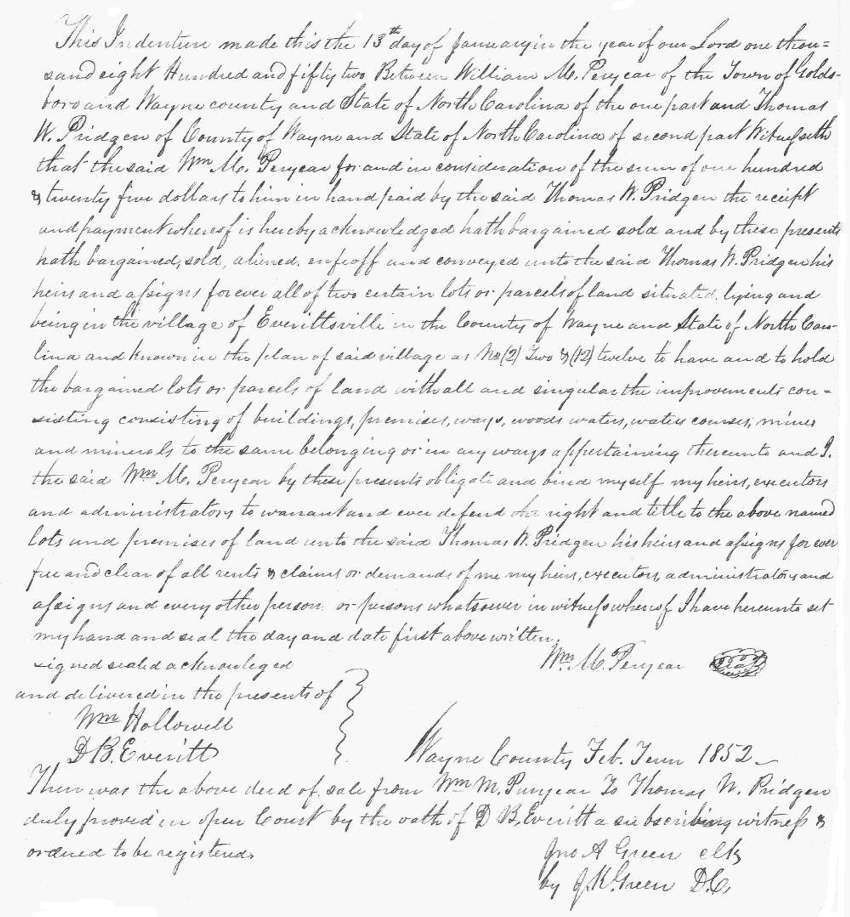 This Indenture made this the 13th day of January in the year of our Lord one thou=
sand eight Hundred and fifty two Between William M. Peryear of the Town of Golds-
boro and Wayne county and State of North Carolina of the one part and Thomas
W. Pridgen of County of Wayne and State of North Carolina of second part Witnesseth
that the said Wm M. Peryear for and in consideration of the sum of one hundred
& twenty five dollars to him in hand paid by the said Thomas W. Pridgen the receipt
and payment whereof is hereby acknowledged hath bargained sold and by these presents
hath bargained, sold, aliened, enfeoff and conveyed unto the said Thomas W. Pridgen his
heirs and assigns forever all of two certain lots or parcels of land situated, lying and
being in the village of Everittsville in the County of Wayne and State of North Caro-
lina and known in the plan of said village as No (2) Two & (12) twelve to have and to hold
the bargained lots or parcels of land with all and singular the improvements con-
sisting consisting of buildings, premises, ways, woods waters, water courses, mines
and minerals to the same belonging or in any ways appertaining thereunto and I.
the said Wm M. Peryear by these presents obligate and bind myself my heirs, executors
and administrators to warrant and ever defend the right and title to the above named
lots and premises of land unto the said Thomas W. Pridgen his heirs and assigns for ever
free and clear of all rents & claims or demands of me my heirs, executors, administrators and
assigns and every other person or persons whatsoever in witness whereof I have hereunto set
my hand and seal the day and date first above written.
signed sealed acknowleged
Wm. M. Peryear Seal
and delivered in the presents of
Wm Hollowell
D B. Everitt
Wayne County Feb. Term 1852
Then was the above deed of sale from Wm M. Punyear To Thomas W. Pridgen
duly proved in open Court by the oath of D B. Everitt a subscribing witness &
ordered to be registered.
Jno A Green clk
by J. K. Green D.C.